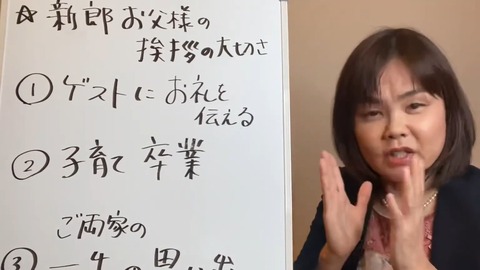 ☆ 新郎お父様の
挨拶の大切さ
① ゲストに お礼を
伝える
② 子育て 卒業
ご両家の
③ 一生の思い出